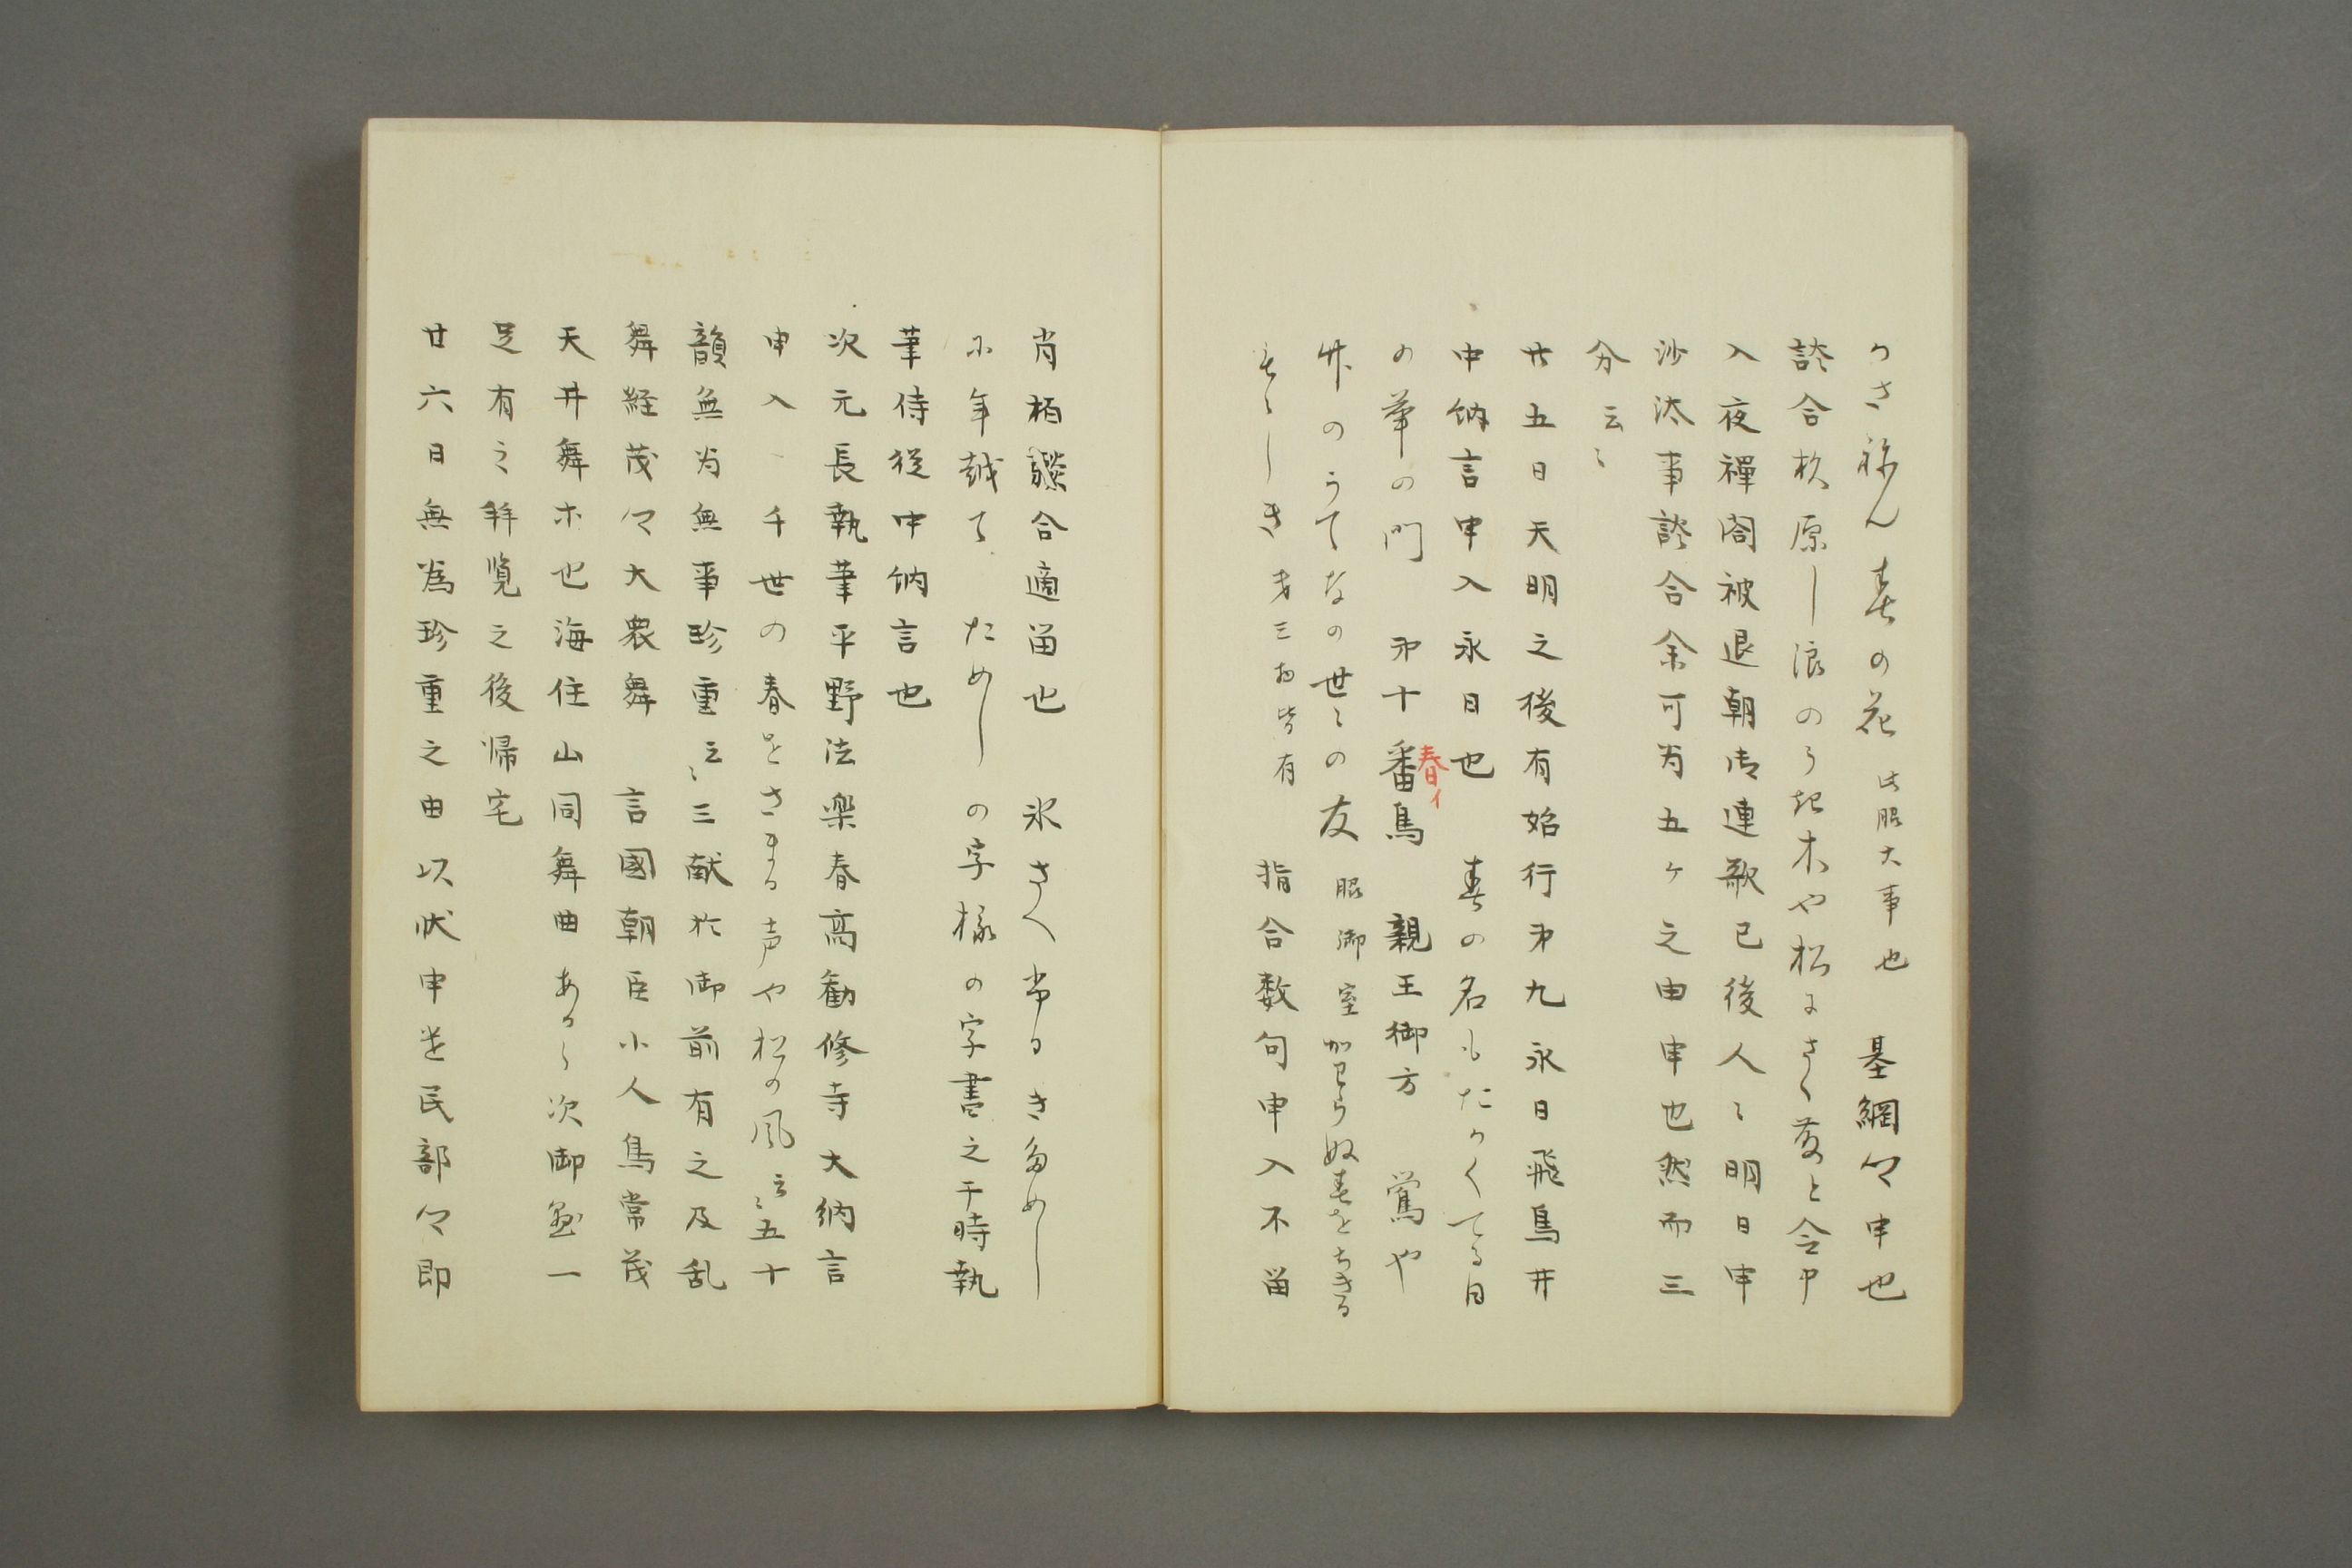 かさねん春の花 此脇大事也 基綱卿申也
談合杉原し浪のうき木や松にさく藤と令申
入夜禅閤被退朝御連歌已後人々明日申
沙汰事談合余可为五ヶ之由申也然而三
分云々
廿五日天明之後有始行第九永日飛鳥井
中納言申入永日也 春の名もたかくてる日
の華の門 第十番鳥 親王御方 鶯や
春イ
竹のうてなの世々の友 脇御室 かはらぬ春をちきる
第三以下皆有 指合数句申入不留
肖柏談合適留也 氷さへ常ハきためし
年越て ためしの字様の字書之于時執
筆侍従中納言也
次元長執筆平野法楽春高勧修寺大納言
申入 千世の春をさまる声や松の風云々五十
韻無为無事珍重云々三献於御前有之及乱
舞経茂卿大衆舞 言國朝臣小人鳥常茂
天井舞ホ也海住山同舞曲あり次御盃一
足有之拝覧之後帰宅
廿六日無為珍重之由以状申遣民部卿即